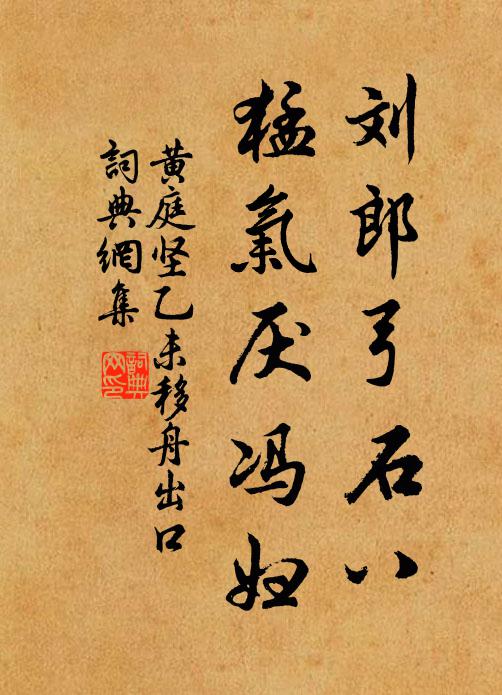 刘郎弓石八
猛氣厌冯妇
黄庭坚乙未移舟出口
詞典網集
詞典
网印